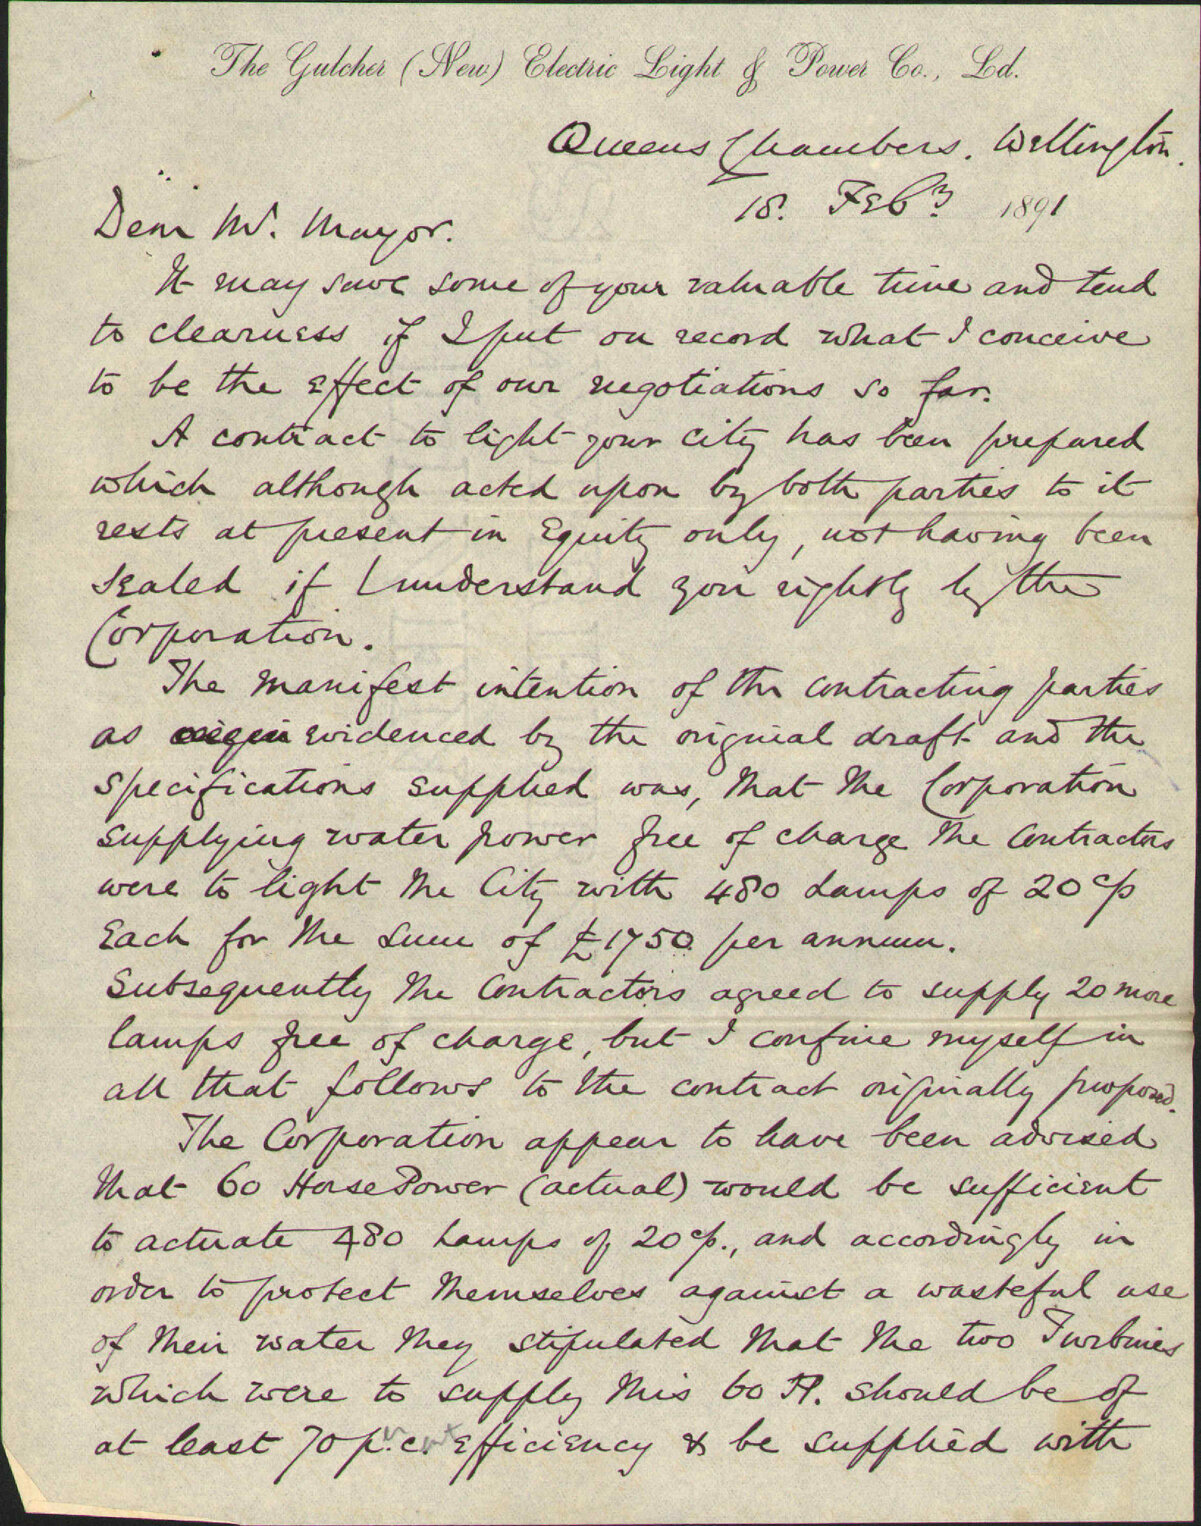 The Gulcher (New) Electric Light & Power Co., Ld.
Queens Chambers. Wellington.
18. Feby. 1891
Dear Mr. Mayor.
It may save some of your valuable time and tend
to clearness if I put on record what I conceive
to be the effect of our negotiations so far.
A contract to light your city has been prepared
which although acted upon by both parties to it
rests at present in Equity only, not having been
sealed if I understand you rightly by the
Corporation.
The manifest intention of the contracting parties
as evidenced by the original draft and the
specifications supplied was, that the Corporation
supplying water power free of charge the contractors
were to light the City with 480 Lamps of 20 c/p
Each for the sum of £1750 per annum.
Subsequently the Contractors agreed to supply 20 more
lamps free of charge, but I confine myself in
all that follows to the contract originally proposed.
The Corporation appear to have been advised
that 60 Horse Power (actual) would be sufficient
to actuate 480 Lamps of 20 c/p., and accordingly in
order to protect themselves against a wasteful use
of their water they stipulated that the two Turbines
which were to supply this 60 H. should be of
at least 70 p. c. Efficiency & be supplied with